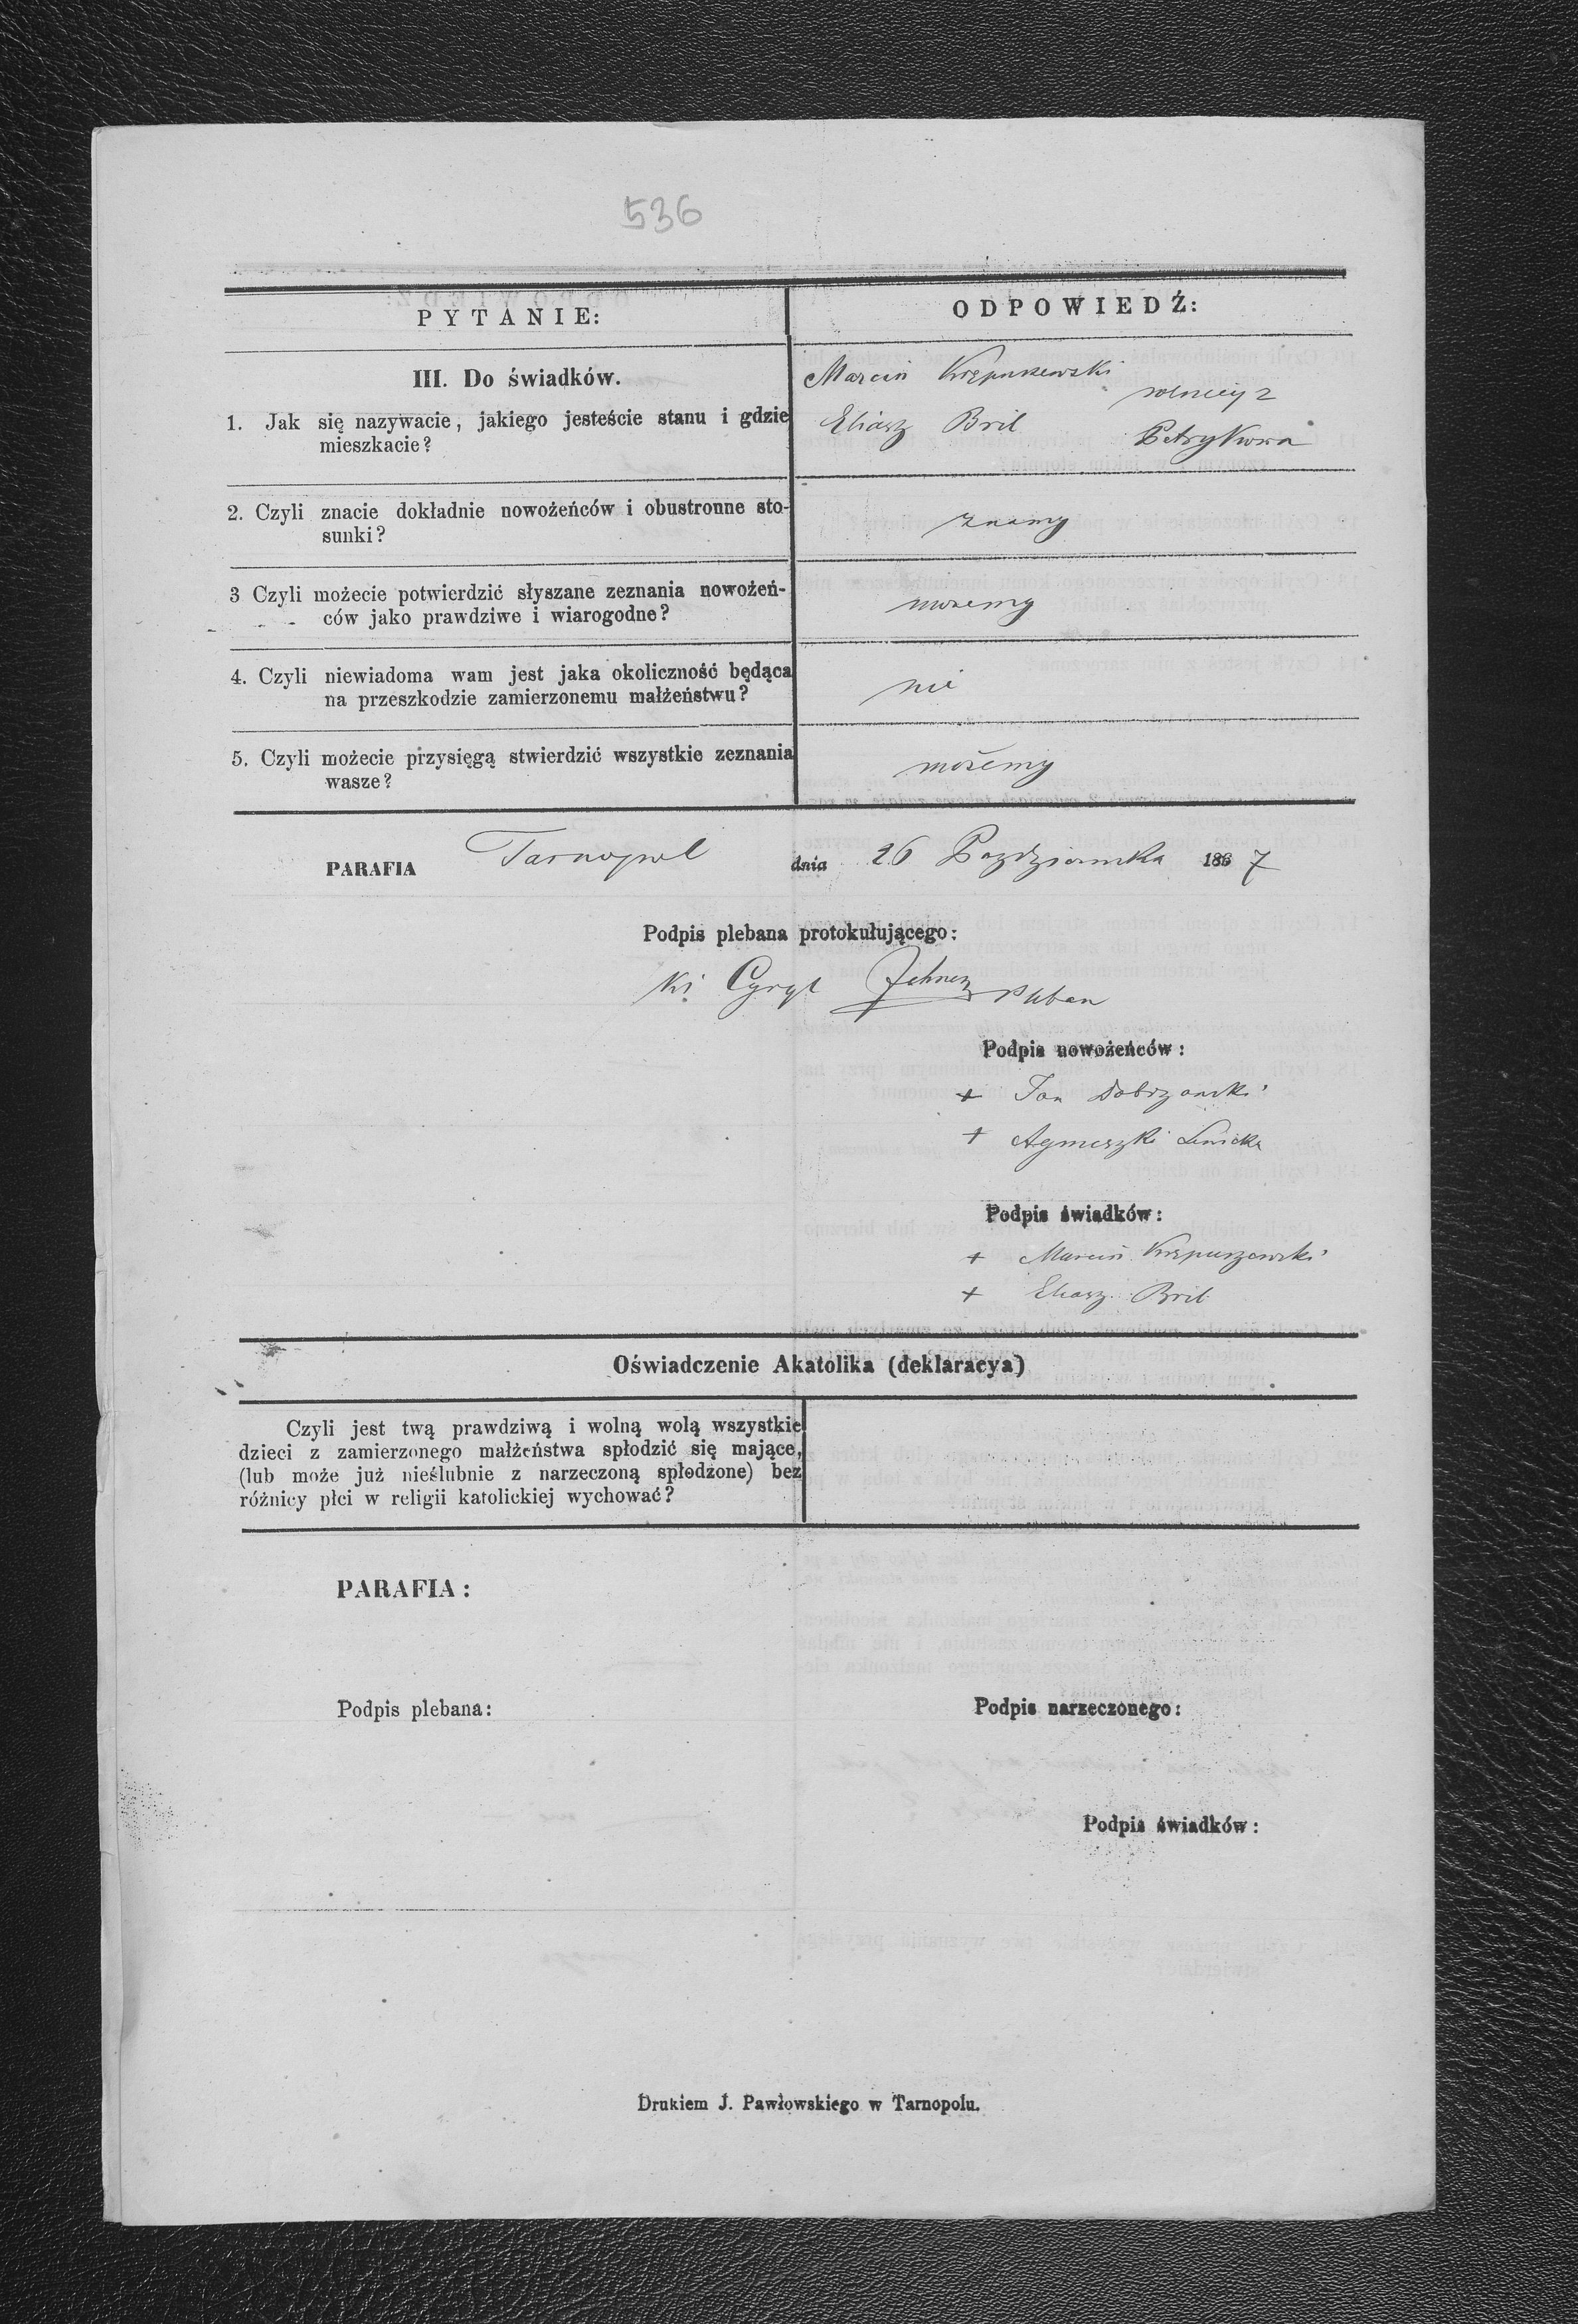 536
PYTANIE:
ODPOWIEDŹ:
III. Do świadków.
1. Jak się nazywacie, jakiego jesteście stanu i gdzie
mieszkacie?
Marcin
rolnicy z
Eliasz Bril
Petrykowa
2. Czyli znacie dokładnie nowożeńców i obustronne sto-
sunki?
znamy
3 Czyli możecie potwierdzić słyszane zeznania nowożeń-
ców jako prawdziwe i wiarogodne?
możemy
4. Czyli niewiadoma wam jest jaka okoliczność będąca
na przeszkodzie zamierzonemu małżeństwu?
nie
5. Czyli możecie przysięgą stwierdzić wszystkie zeznania
wasze?
możemy
PARAFIA Tarnopol dnia 26 Października 1887
Podpis plebana protokułującego:
Cyryl
Podpis nowożeńców:
+ Jan Dobrzanski
+ Agnieszka
Podpis świadków:
+ Marcin
+ Eliasz Bril
Oświadczenie Akatolika (deklaracya)
Czyli jest twą prawdziwą i wolną wolą wszystkie
dzieci z zamierzonego małżeństwa spłodzić się mające,
(lub może już nieślubnie z narzeczoną spłodzone) bez
różnicy płci w religii katolickiej wychować?
PARAFIA:
Podpis plebana:
Podpis narzeczonego:
Podpis świadków:
Drukiem J. Pawłowskiego w Tarnopolu.